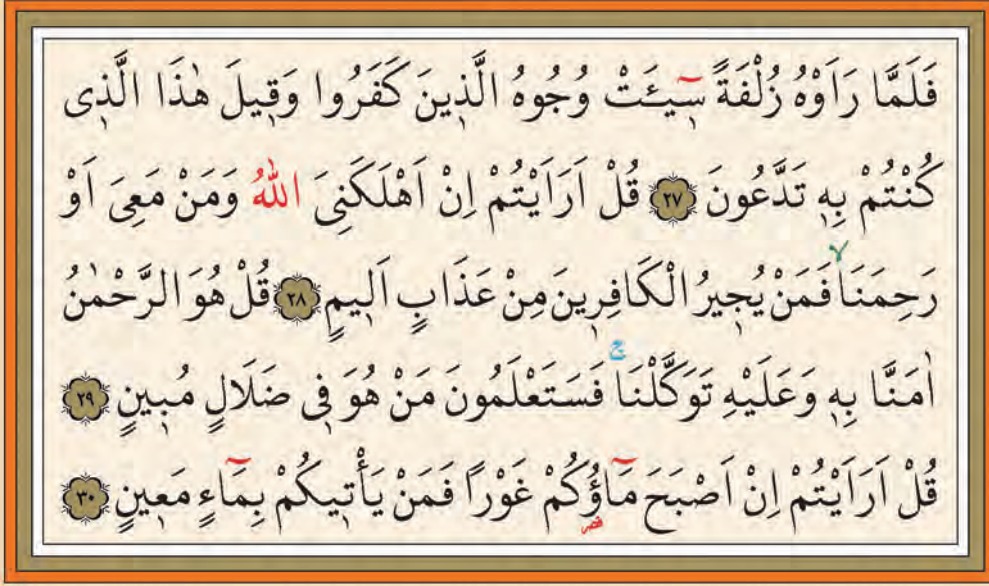 فَلَمَّا رَاَوْهُ زُلْفَةً سٖٓيـَٔتْ وُجُوهُ الَّذٖينَ كَفَرُوا وَقٖيلَ هٰذَا الَّذٖى
كُنْتُمْ بِهٖ تَدَّعُونَ ﴿٢٧﴾ قُلْ اَرَاَيْتُمْ اِنْ اَهْلَكَنِىَ اللّٰهُ وَمَنْ مَعِىَ اَوْ
رَحِمَنَاۙ فَمَنْ يُجٖيرُ الْكَافِرٖينَ مِنْ عَذَابٍ اَلٖيمٍ ﴿٢٨﴾ قُلْ هُوَ الرَّحْمٰنُ
اٰمَنَّا بِهٖ وَعَلَيْهِ تَوَكَّلْنَاۚ فَسَتَعْلَمُونَ مَنْ هُوَ فٖى ضَلَالٍ مُبٖينٍ ﴿٢٩﴾
قُلْ اَرَاَيْتُمْ اِنْ اَصْبَحَ مَٓاؤُ۬كُمْ غَوْرًا فَمَنْ يَأْتٖيكُمْ بِمَٓاءٍ مَعٖينٍ ﴿٣٠﴾